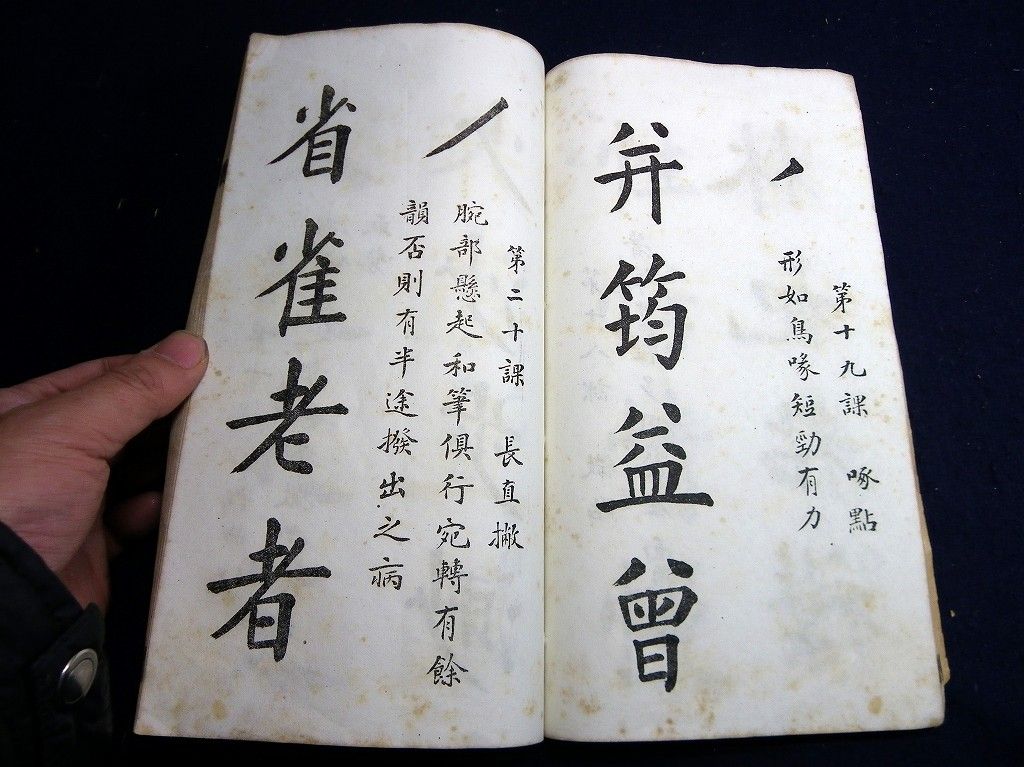 第十九課 啄點
形如鳥喙短勁有力
幷筠益曾
第二十課 長直撇
腕部懸起和筆俱行宛轉有餘
韻否則有半途撥出之病
省雀老者